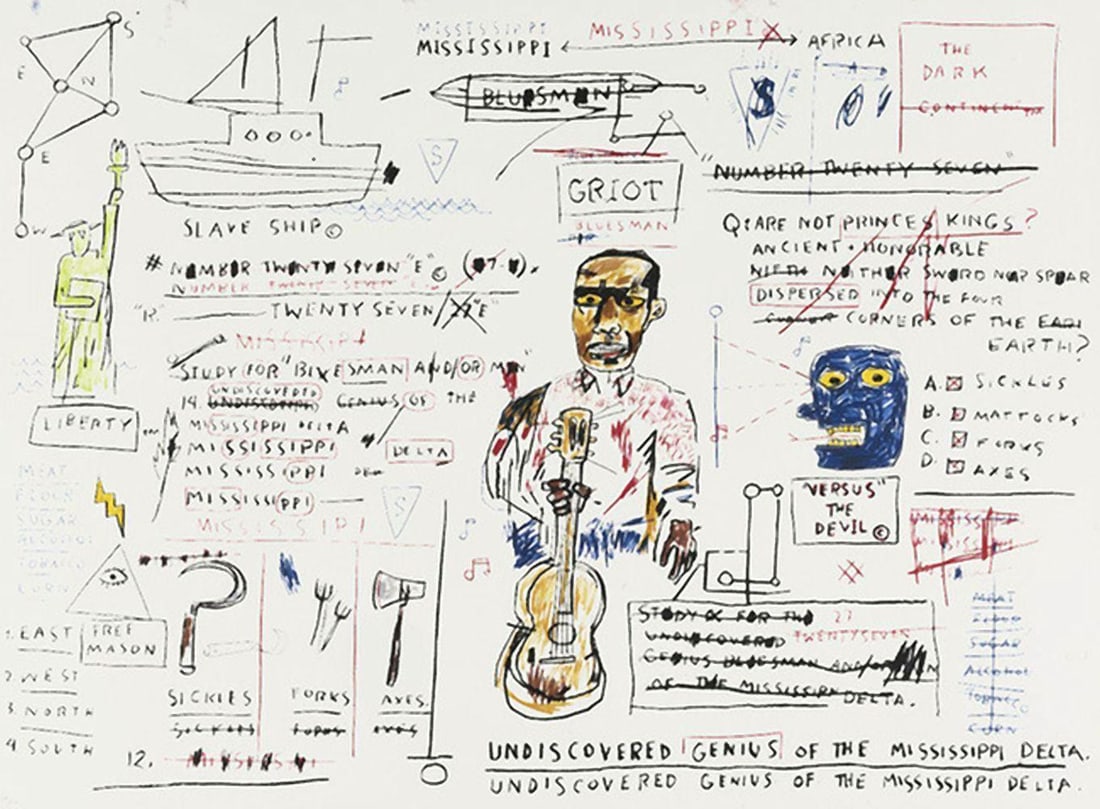 S
E
N
E
W
MISSISSIPPI
MISSISSIPPI
MISSISSIPPI
AFRICA
THE
DARK
BLUESMAN
S
"NUMBER TWENTY SEVEN"
GRIOT
BLUESMAN
SLAVE SHIP ©
# NUMBER TWENTY SEVEN "E" ©
NUMBER TWENTY SEVEN
"R. TWENTY SEVEN "E"
MISSISSIPI
STUDY FOR "BLUESMAN AND/OR MEN"
UNDISCOVERED
14. UNDISCOVERED GENIUS OF THE
MISSISSIPPI DELTA
MISSISSIPPI
DELTA
MISSISSIPPI
MISSISSIPPI
MISSISSIPI
S
LIBERTY
MEAT
FLOUR
SUGAR
ALCOHOL
TOBACCO
CORN
1. EAST
2. WEST
3. NORTH
4. SOUTH
FREE
MASON
SICKLES
FORKS
AXES.
SICKLES
FORKS
AXES
12.
Q: ARE NOT PRINCES KINGS?
ANCIENT + HONORABLE
NIETH NEATHER SWORD NOR SPEAR
DISPERSED INTO THE FOUR
CORNERS OF THE EAR
EARTH?
A. SICKLES
B. MATTOCKS
C. FORKS
D. AXES
"VERSUS"
THE
DEVIL ©
MISSISSIPPI
MISSISSIPPI
STUDY FOR THE 27
UNDISCOVERED TWENTYSEVEN
GENIUS BLUESMAN AND/OR
OF THE MISSISSIPPI DELTA.
MEAT
FLOUR
SUGAR
ALCOHOL
TOBACCO
CORN
UNDISCOVERED GENIUS OF THE MISSISSIPPI DELTA.
UNDISCOVERED GENIUS OF THE MISSISSIPPI DELTA.